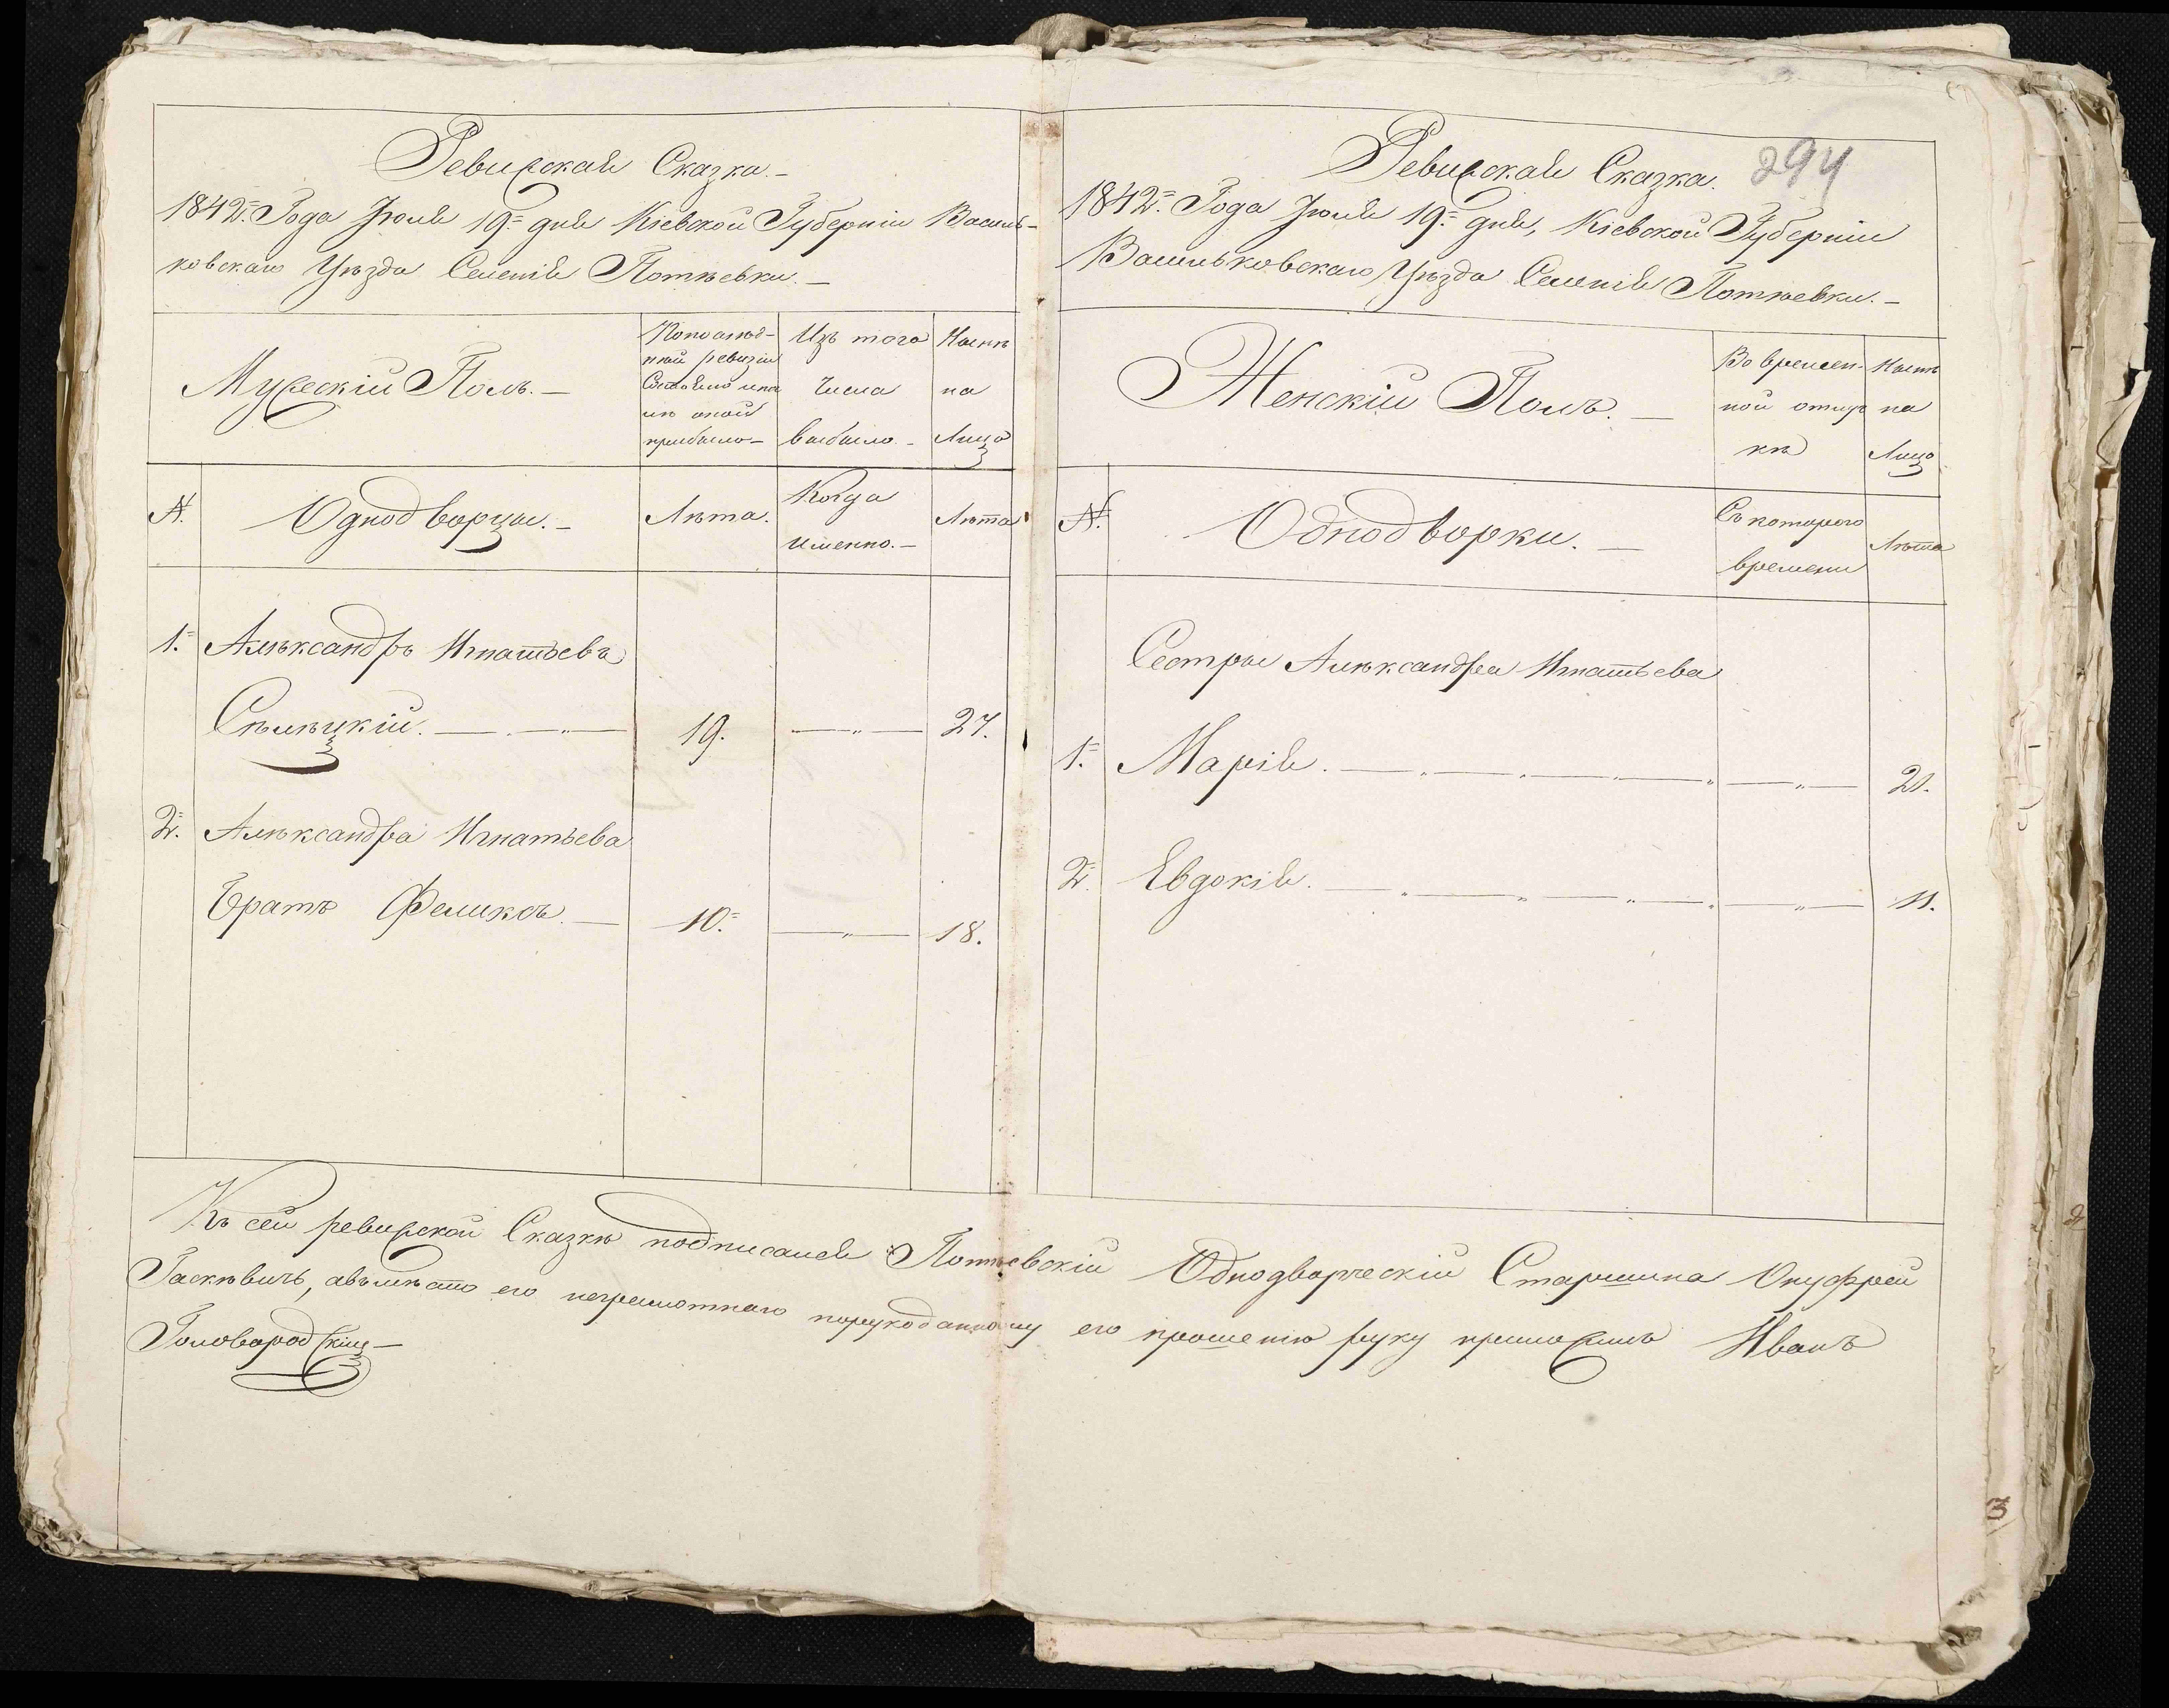 Ревизская Сказка.
1842. Года Июля 19. дня Кіевской Губерніи Василь-
ковскаго Уѣзда Селенія Потіевки.
Мужескій Полъ.
По послѣд-
ней ревизіи
Состояло и по
слѣ оной
прибыло
Изъ того
числа
выбыло
Нынѣ
на
Лицо
№.
Однодворцы.
Лѣта.
Когда
именно.
Лѣта
1. Алѣксандръ Игнатьевъ
Сѣлѣцкій. 19. 27.
2. Алѣксандра Игнатьева
Братъ Феликсъ. 10. 18.
294
Ревизская Сказка.
1842. Года Июля 19. дня, Кіевской Губерніи
Васильковскаго Уѣзда Селенія Потіевки.
Женскій Полъ.
Во времен-
ной отлуч
кѣ
Нынѣ
на
Лицо
№.
Однодворки.
Съ котораго
времени
Лѣта
Сестры Алѣксандра Игнатьева
1. Марія. 21.
2. Евдокія. 11.
Къ сей ревизской Сказкѣ подписался Потіевскій Однодворческій Старшина Онуфрей
Гаскѣвичъ, авъмѣсто его неграмотнаго порукоданному его прошенію руку приложилъ Иванъ
3